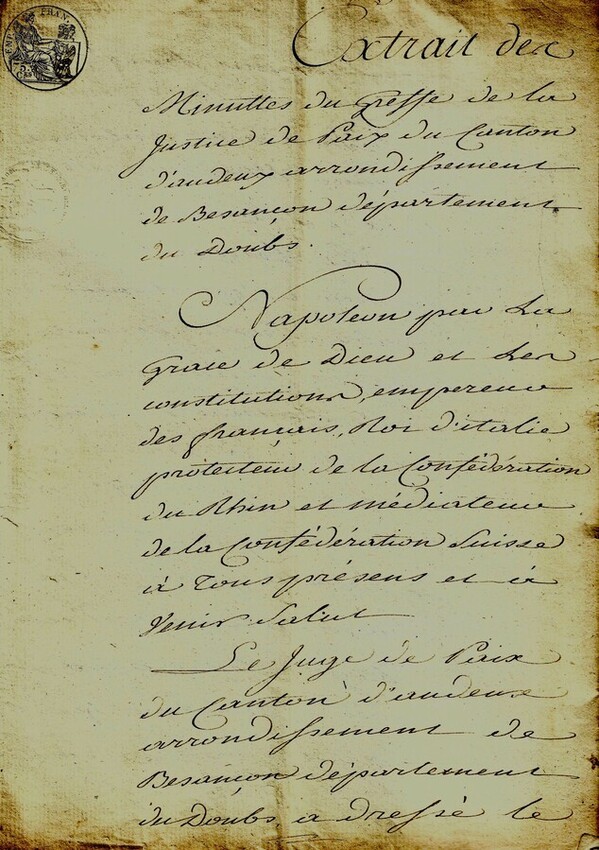 Extrait des
Minuttes du greffe de la
Justice de Paix du Canton
d'audeux arrondissement
de Besançon département
du Doubs.
Napoleon par La
grace de Dieu et Les
constitutions, empereur
des français, Roi d'italie
protecteur de la Confédération
du Rhin et médiateur
de la Confédération Suisse
à Tous présens et à
Venir Salut
Le Juge de Paix
du Canton d'audeux
arrondissement de
Besançon département
du Doubs a dressé le